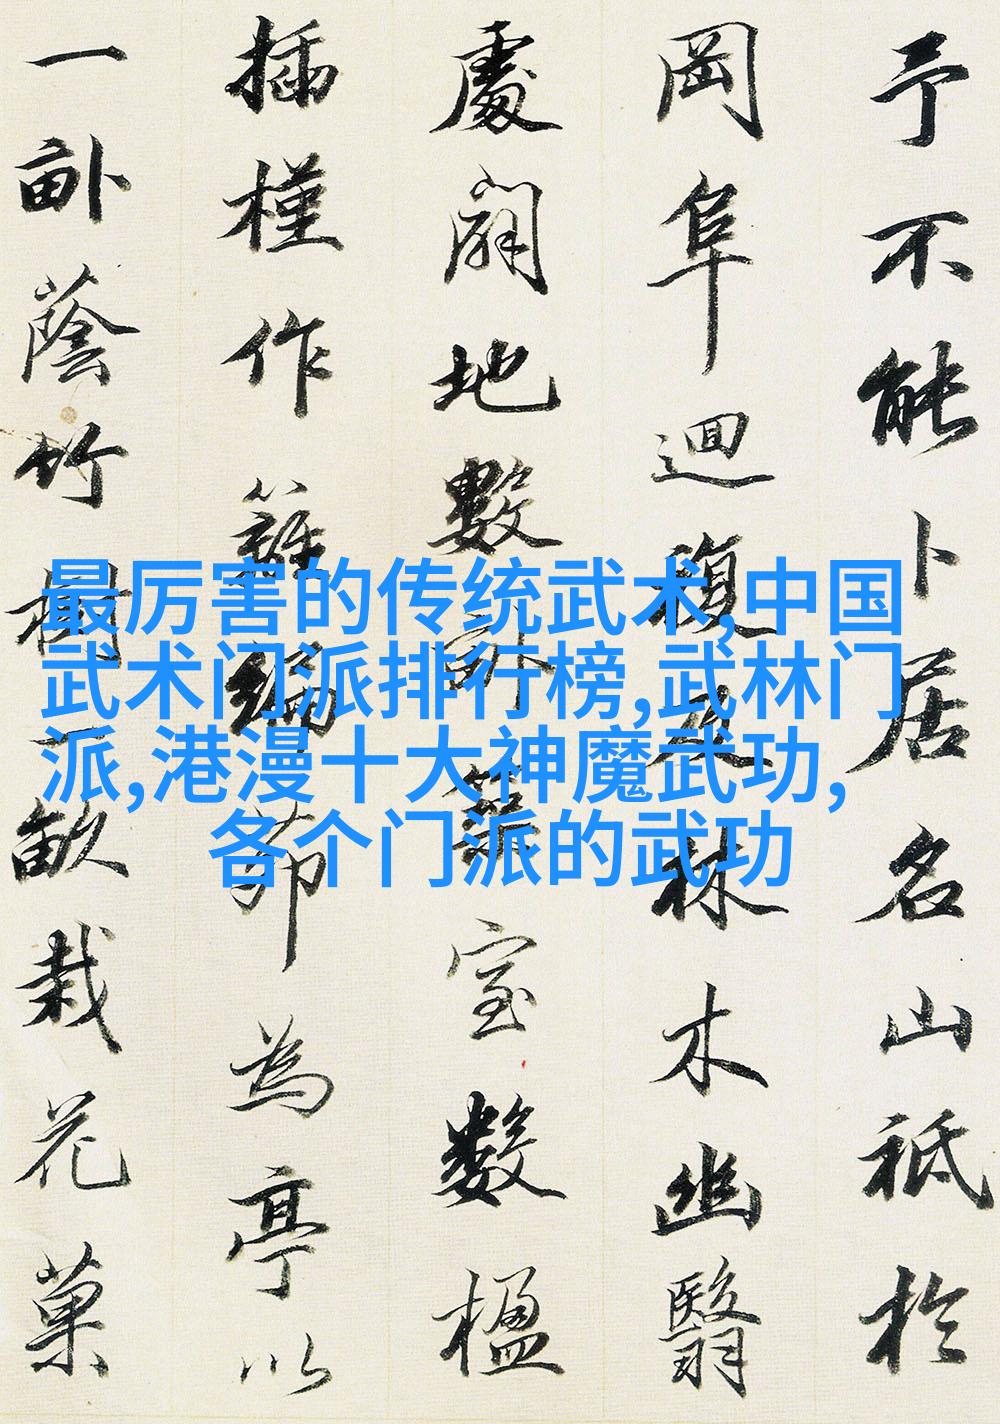 予不能卜居名山祗於
岡阜迴複及林木幽翳
處闢地數畝築室數楹
插槿作籬編茆為亭以
一畝蔭竹樹一畝栽花菓
最厉害的传统武术,中国
武术门派排行榜,武林门
派,港漫十大神魔武功,
各个门派的武功